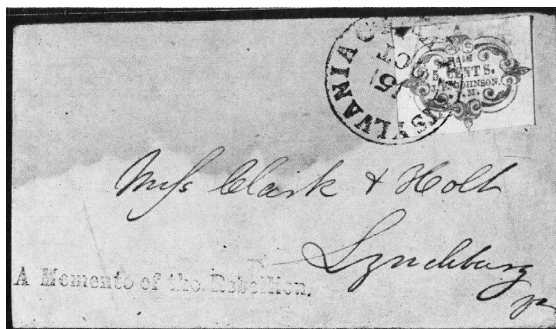 SYLVANIA C
15
5 CENTS.
JOHNSON.
Mess Clark & Holt
Lynchburg
Va
A Memento of the Rebellion.